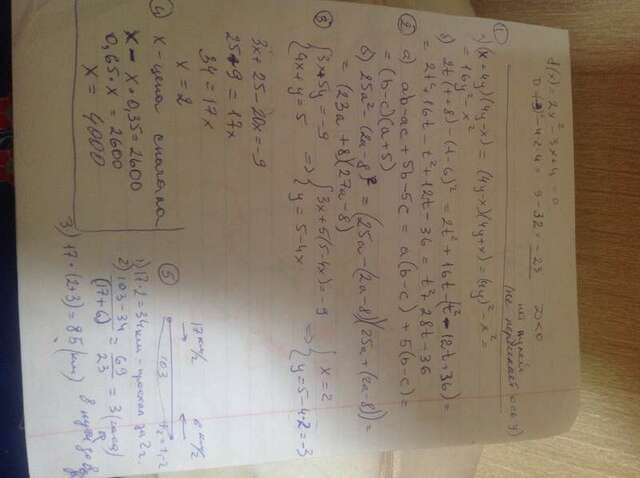 f(x) = 2x² - 3x + 4 = 0
= 9 - 32 = -23 D < 0
нет нулей
(не пересекает ось y)
①
а) (x + 4y)(4y - x) = (4y - x)(4y + x) = (4y)² - x² =
= 16y² - x²
б) 2t(t + 8) - (t - 6)² = 2t² + 16t - (t² - 12t + 36) =
= 2t² + 16t - t² + 12t - 36 = t² + 28t - 36
② а) ab - ac + 5b - 5c = a(b - c) + 5(b - c) =
= (b - c)(a + 5)
б) 25a² - (2a - 8)² = (25a - (2a - 8))(25a + (2a - 8)) =
= (23a + 8)(27a - 8)
③ { 3x + 5y = -9 => { 3x + 5(5 - 4x) = -9 => { x = 2
{ 4x + y = 5 { y = 5 - 4x { y = 5 - 4·2 = -3
3x + 25 - 20x = -9
25 + 9 = 17x
34 = 17x
x = 2
④ x - цена сначала
x - x · 0,35 = 2600
0,65 · x = 2600
x = 4000
⑤ 17 км/ч 6 км/ч
103
1) 17 · 2 = 34 км - проехал за 2 ч.
2) (103 - 34)/(17 + 6) = 69/23 = 3 (часа)
3) 17 · (2 + 3) = 85 (км)